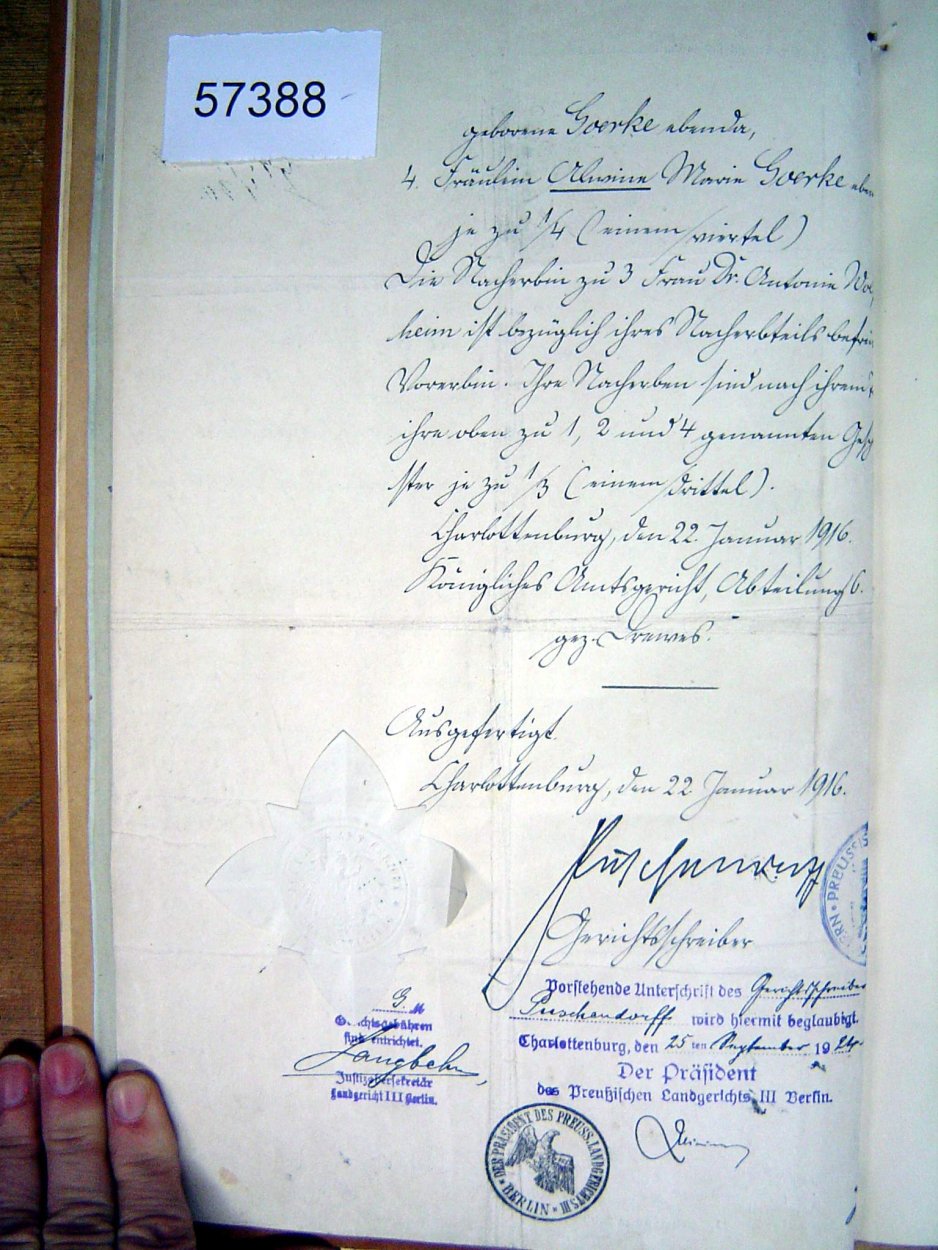 57388
geborene Goerke ebenda,
4. Fräulein Alwine Marie Goerke eben
je zu 1/4 (einem/viertel)
Die Nacherbin zu 3 Frau Dr. Antonie Wol
heim ist bezüglich ihres Nacherbteils befrei
Vorerbin. Ihre Nacherben sind nach ihrem
ihre oben zu 1, 2 und 4 genannten Gesch
ster je zu 1/3 (einem/drittel).
Charlottenburg, den 22. Januar 1916.
Königliches Amtsgericht, Abteilung 6.
gez. Drewes.
Ausgefertigt
Charlottenburg, den 22 Januar 1916.
Gerichtsschreiber
ERN • PREUSS
Vorstehende Unterschrift des Gerichtsschreiber
Puschendorff wird hiermit beglaubigt.
Charlottenburg, den 25ten September 192
Der Präsident
des Preußischen Landgerichts III Berlin.
Gerichtsgebühren
sind entrichtet.
Langbehn
Justizobersekretär
Landgericht III Berlin.
DER PRÄSIDENT DES PREUSS. LANDGERICHTS III • BERLIN •